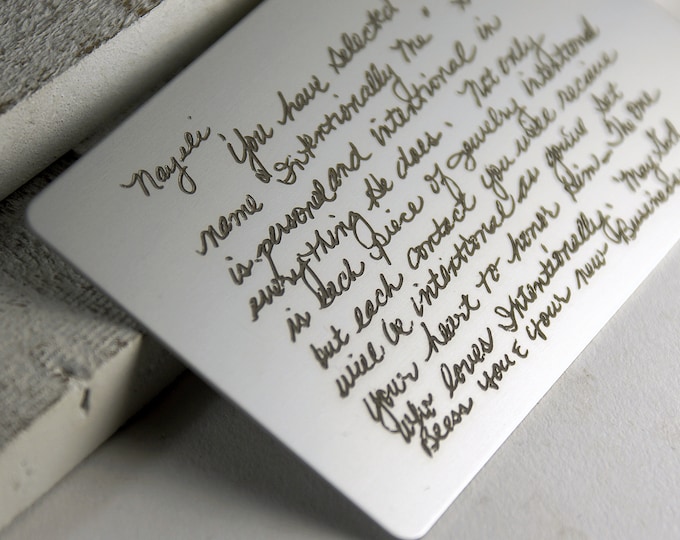 Nayeli
You have selected
name Intentionally The
is personal and intentional in
everything He does. Not only
is each piece of jewelry intentional
but each contact you will receive
will be intentional as you've set
your heart to honor Him - The One
who loves Intentionally. May God
Bless you & your new Business